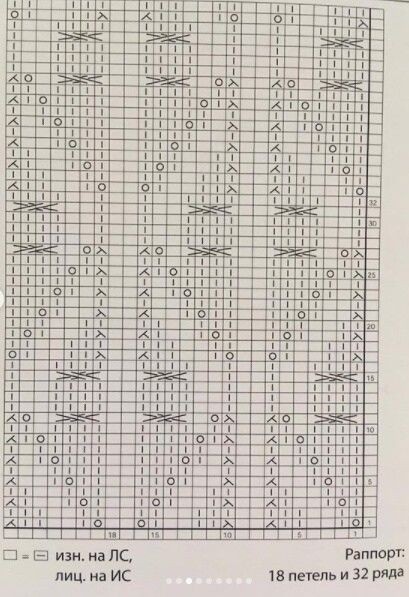 32
30
25
20
15
10
5
1
18 15 10 5 1
□ = ⊟ изн. на ЛС,
лиц. на ИС
Раппорт:
18 петель и 32 ряда